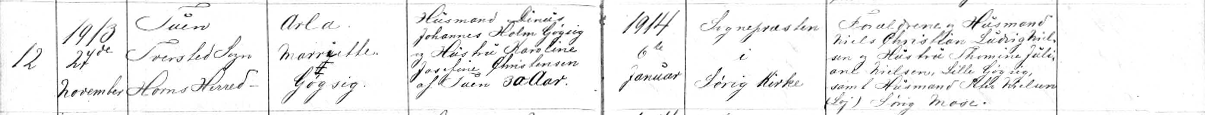 12
1913
24de
November
Tuen
Tversted Sogn
Horns Herred
Arla
Marriette
Gøgsig.
Husmand Dinus
Johannes Holm Gøgsig
og Hustru Karoline
Josefine Christensen
af Tuen 30 Aar.
1914
6te
Januar
Sognepræsten
i
Sørig Kirke
Forældrene og Husmand
Niels Christian Ludvig Niel-
sen og Hustru Thomine Juli-
ane Nielsen, Lille Gøgsig,
samt Husmand Nielsen
Sørig Mose.